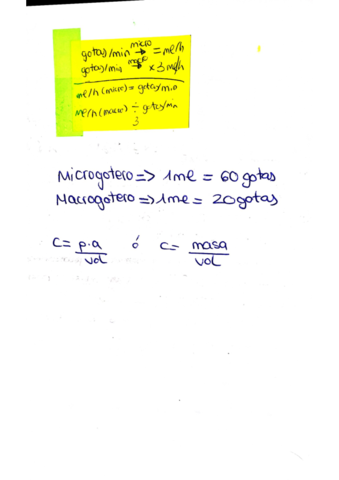 micro
gotas/min → = ml/h
macro
gotas/min → x 3 ml/h
ml/h (micro) = gotas/min
ml/h (macro) ÷ gotas/min
3
Microgotero => 1ml = 60 gotas
Macrogotero => 1ml = 20 gotas
C = p.a ó C = masa
vol vol